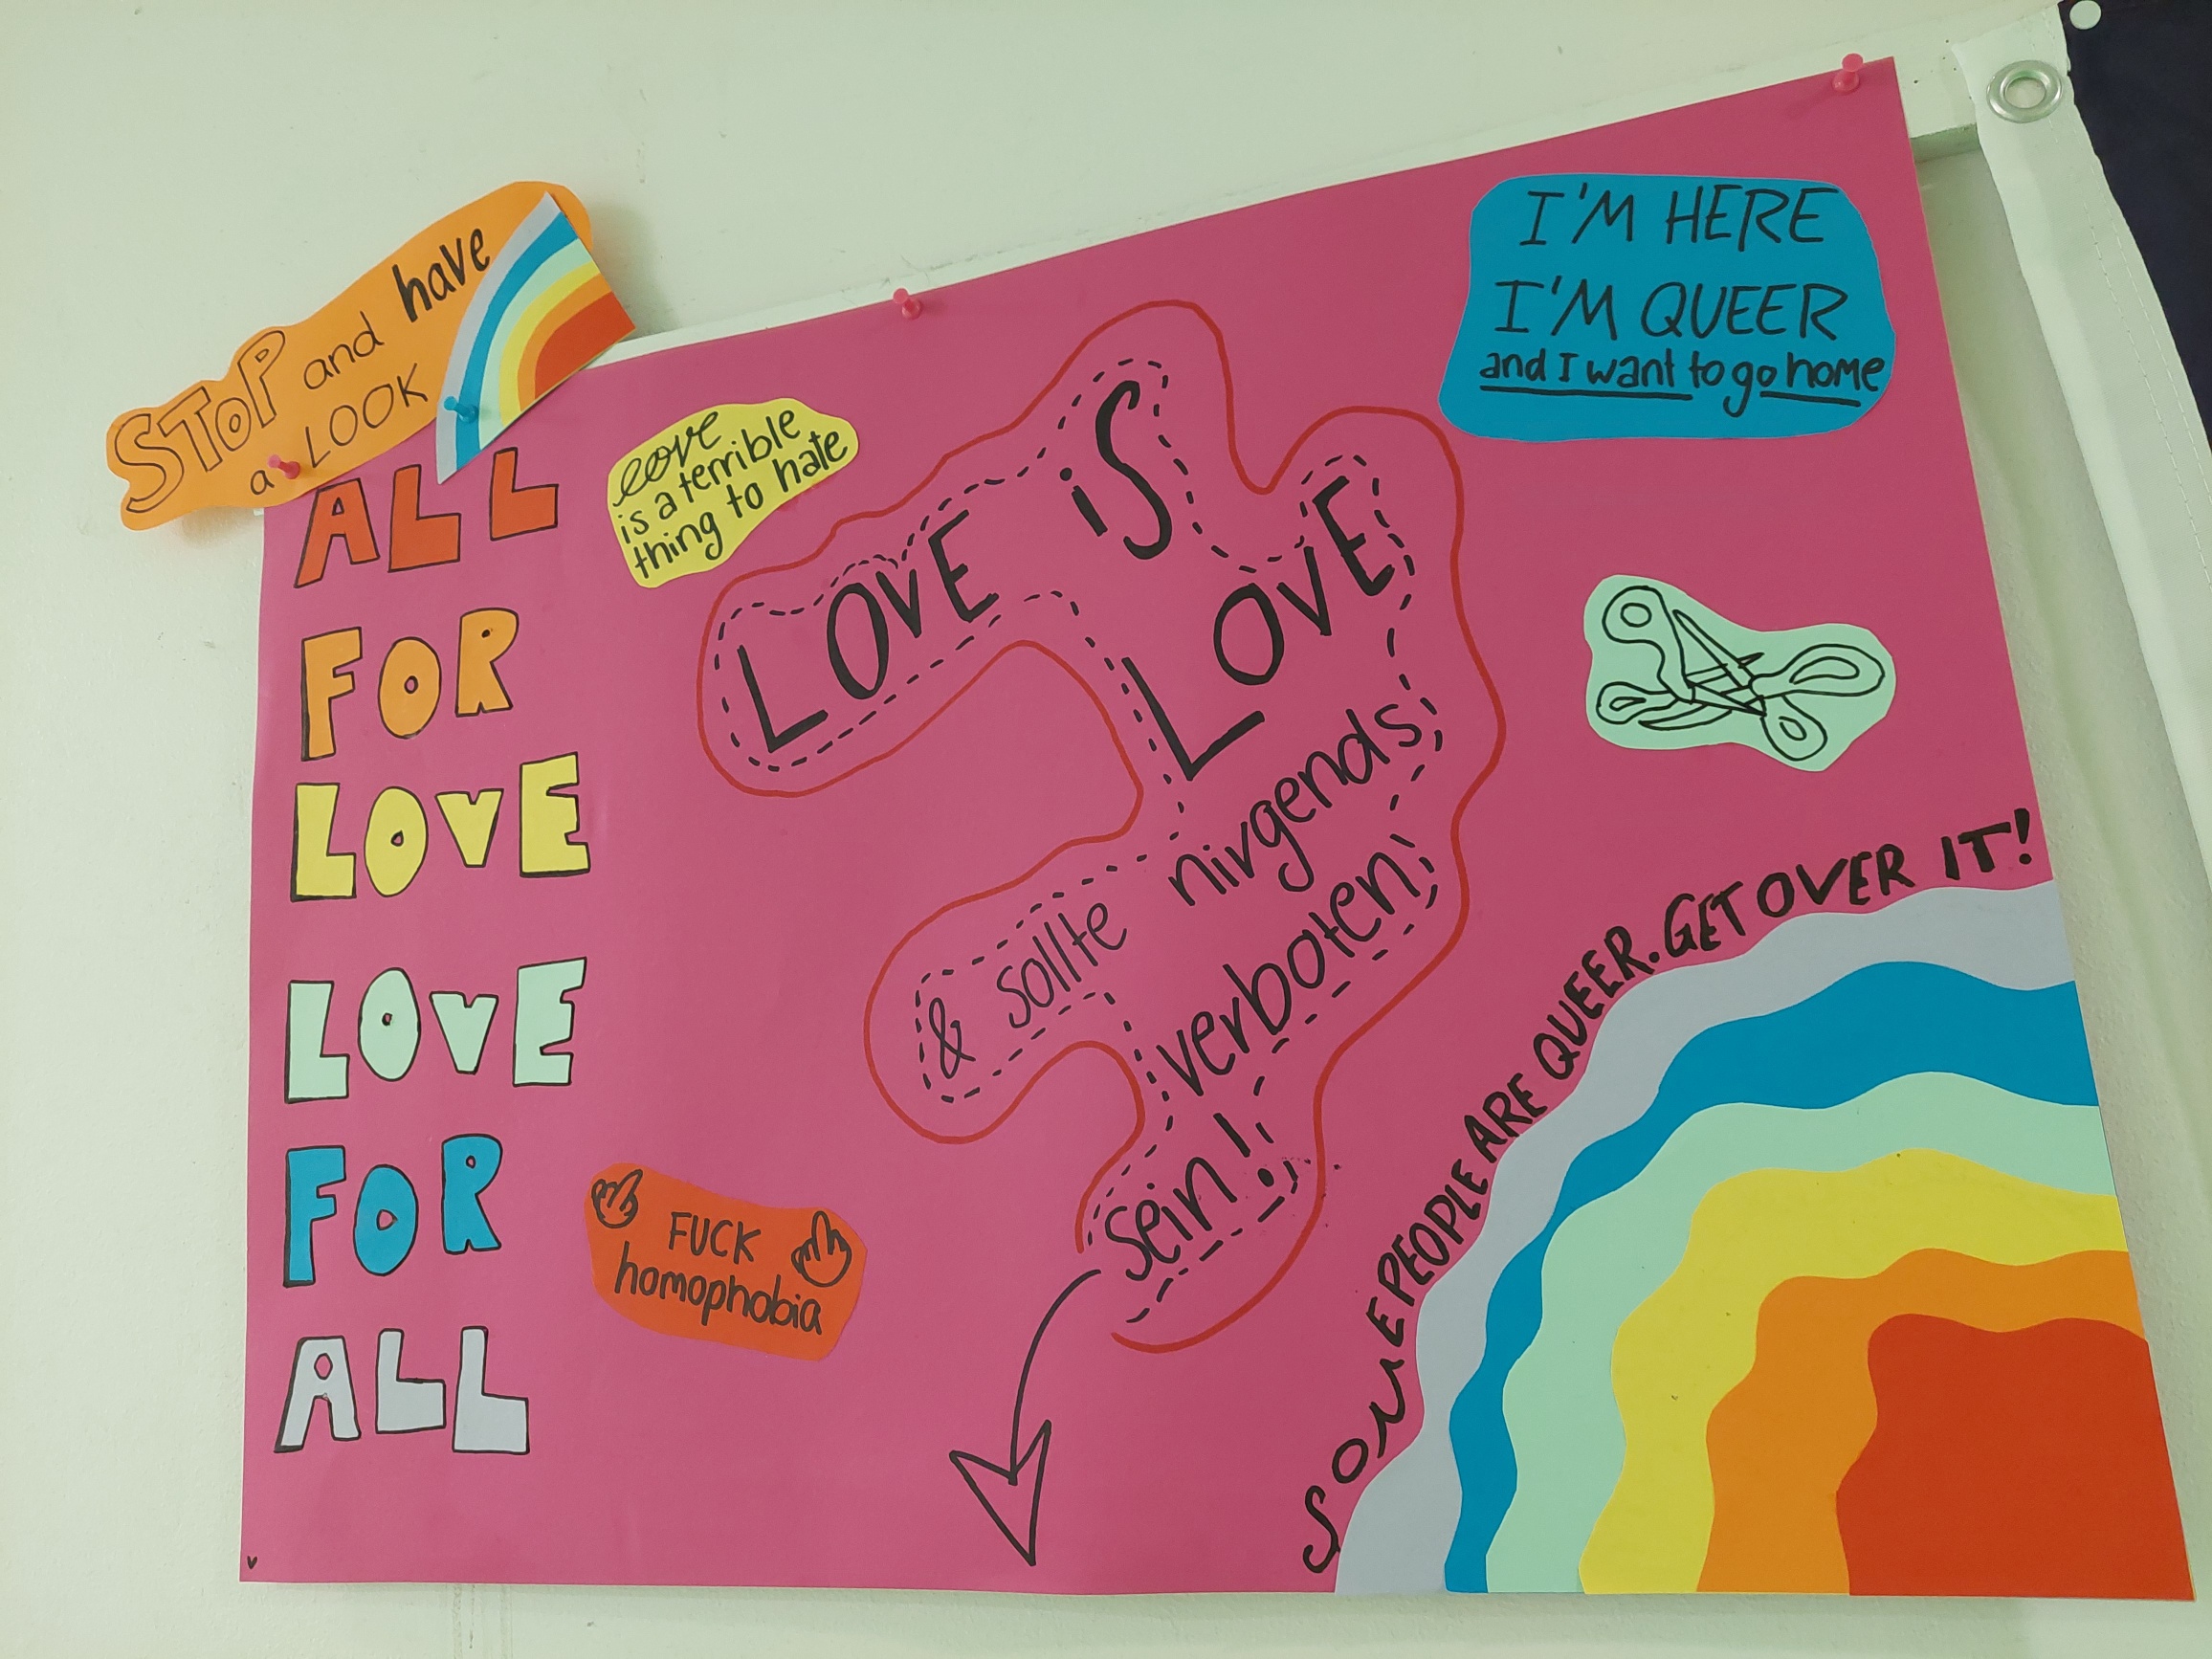 STOP and have
a LOOK
ALL
FOR
LOVE
LOVE
FOR
ALL
love
is a terrible
thing to hate
LOVE iS
LOVE
& sollte nirgends
verboten
sein!
FUCK
homophobia
I'M HERE
I'M QUEER
and I want to go home
SOME PEOPLE ARE QUEER. GET OVER IT!